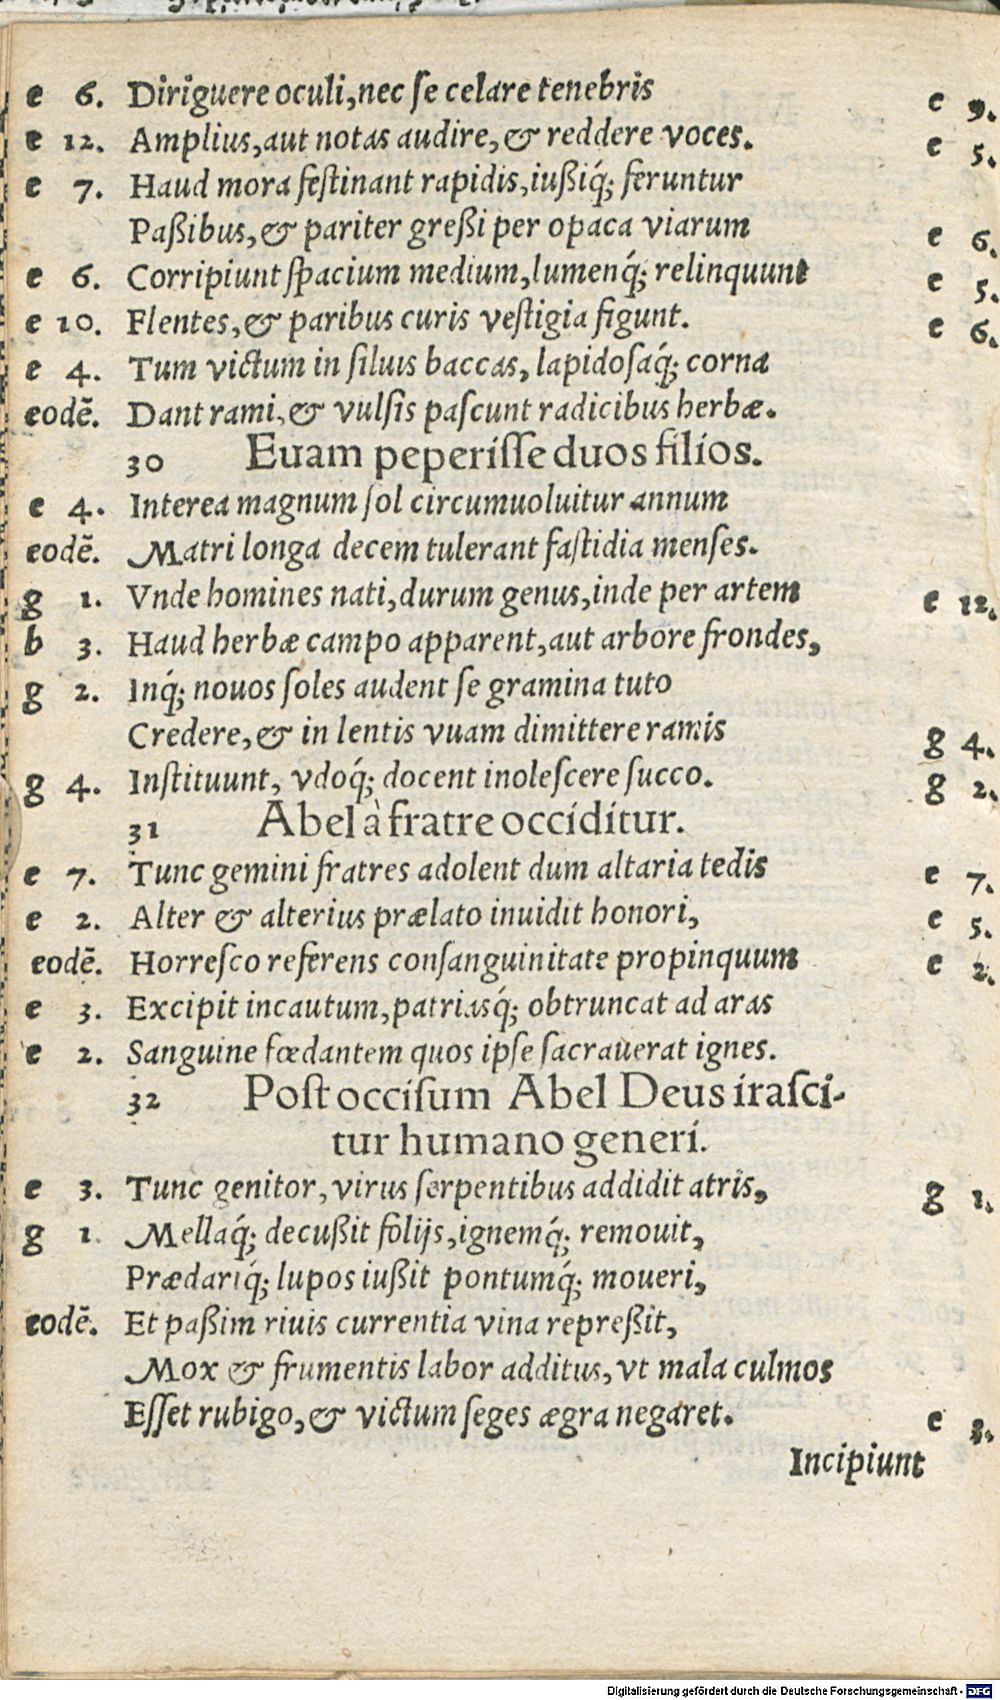 e 6. Diriguere oculi, nec se celare tenebris e 9.
e 12. Amplius, aut notas audire, & reddere voces. e 5.
e 7. Haud mora festinant rapidis, iußiq́; feruntur
Paßibus, & pariter greßi per opaca viarum e 6.
e 6. Corripiunt spacium medium, lumenq́; relinquunt e 5.
e 10. Flentes, & paribus curis vestigia figunt. e 6.
e 4. Tum victum in siluis baccas, lapidosaq́; corna
eodē. Dant rami, & vulsis pascunt radicibus herbæ.
30 Euam peperisse duos filios.
e 4. Interea magnum sol circumuoluitur annum
eodē. Matri longa decem tulerant fastidia menses.
g 1. Vnde homines nati, durum genus, inde per artem e 12.
b 3. Haud herbæ campo apparent, aut arbore frondes,
g 2. Inq́; nouos soles audent se gramina tuto
Credere, & in lentis vuam dimittere ramis g 4.
g 4. Instituunt, vdoq́; docent inolescere succo. g 2.
31 Abel à fratre occiditur.
e 7. Tunc gemini fratres adolent dum altaria tedis e 7.
e 2. Alter & alterius prælato inuidit honori, e 5.
eodē. Horresco referens consanguinitate propinquum e 2.
e 3. Excipit incautum, patriasq́; obtruncat ad aras
e 2. Sanguine fœdantem quos ipse sacrauerat ignes.
32 Post occisum Abel Deus irasci-
tur humano generi.
e 3. Tunc genitor, virus serpentibus addidit atris, g 1.
g 1. Mellaq́; decußit folijs, ignemq́; remouit,
Prædariq́; lupos iußit pontumq́; moueri,
eodē. Et paßim riuis currentia vina repreßit,
Mox & frumentis labor additus, vt mala culmos
Esset rubigo, & victum seges ægra negaret. e 3.
Incipiunt
Digitalisierung gefördert durch die Deutsche Forschungsgemeinschaft - DFG